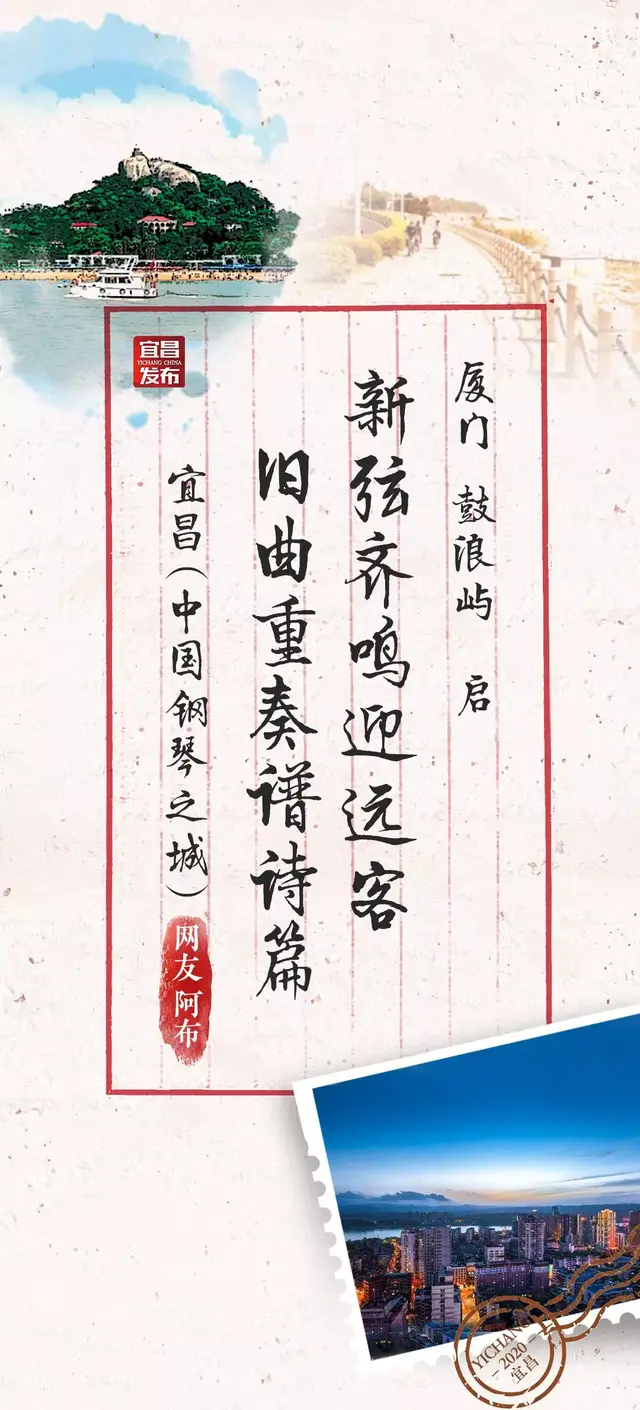 宜昌
YICHANG CHINA
发布
厦门 鼓浪屿 启
新弦齐鸣迎远客
旧曲重奏谱诗篇
宜昌（中国钢琴之城）
网友 阿布
YICHANG
2020
宜昌